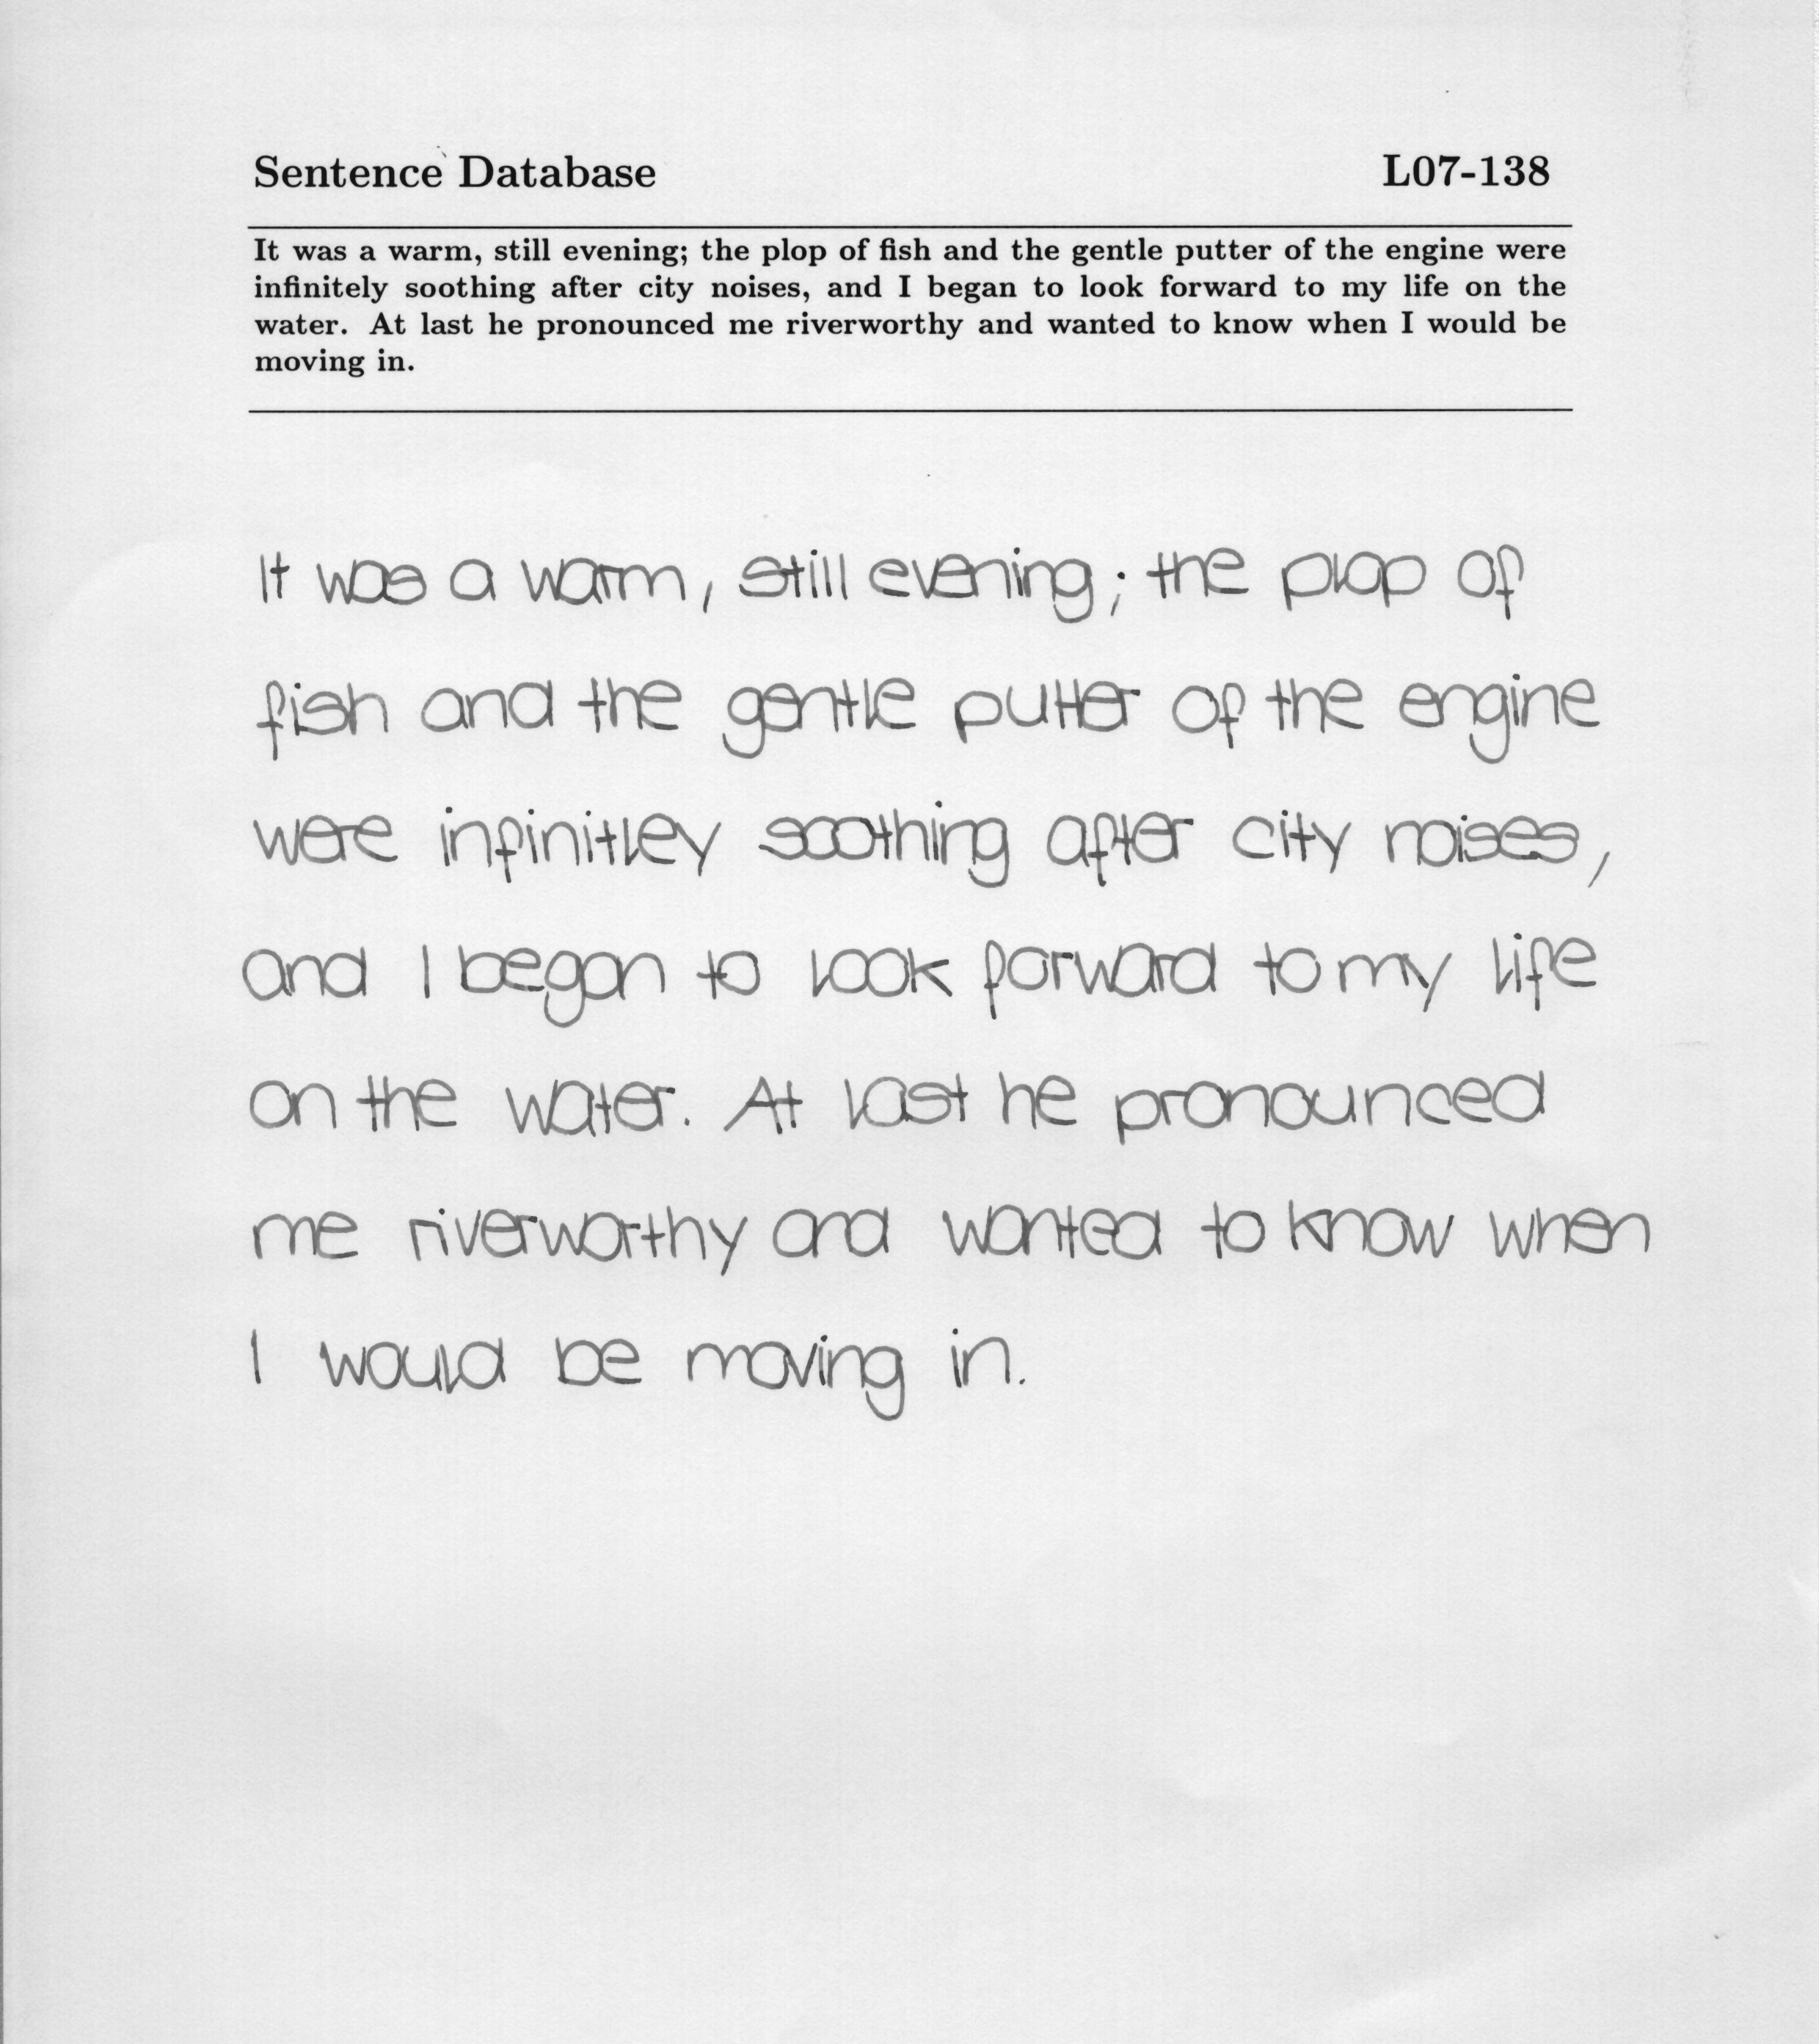 Sentence Database L07-138
It was a warm, still evening; the plop of fish and the gentle putter of the engine were
infinitely soothing after city noises, and I began to look forward to my life on the
water. At last he pronounced me riverworthy and wanted to know when I would be
moving in.
It was a warm, still evening; the plop of
fish and the gentle putter of the engine
were infinitley soothing after city noises,
and I began to look forward to my life
on the water. At last he pronounced
me riverworthy and wanted to know when
I would be moving in.